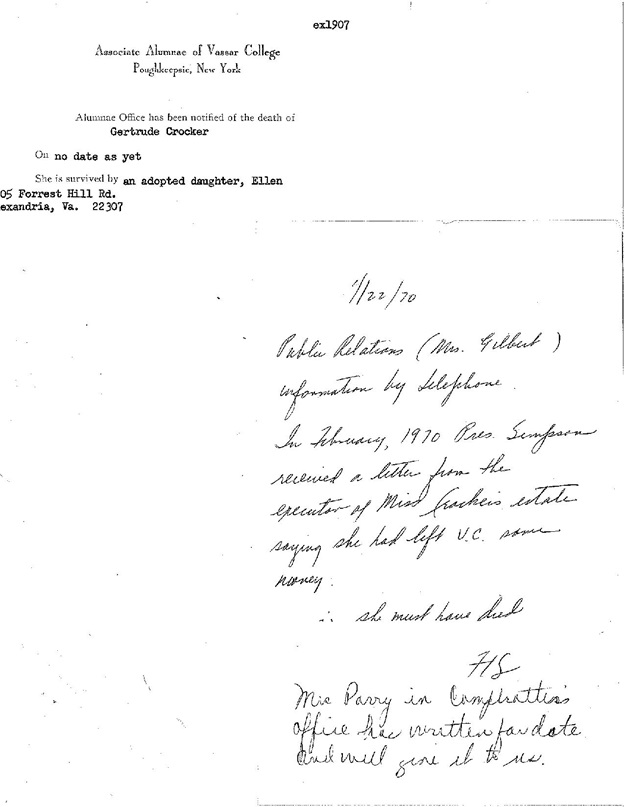 ex1907
Associate Alumnae of Vassar College
Poughkeepsie, New York
Alumnae Office has been notified of the death of
Gertrude Crocker
On no date as yet
She is survived by an adopted daughter, Ellen
05 Forrest Hill Rd.
exandria, Va. 22307
/22/70
Public Relations (Mrs. Gilbert)
information by telephone.
In February, 1970 Pres. Simpson
received a letter from the
executor of Miss Crocker's estate
saying she had left V.C. some
money.
∴ she must have died
Mrs Parry in
office has written for date
and will give it to us.